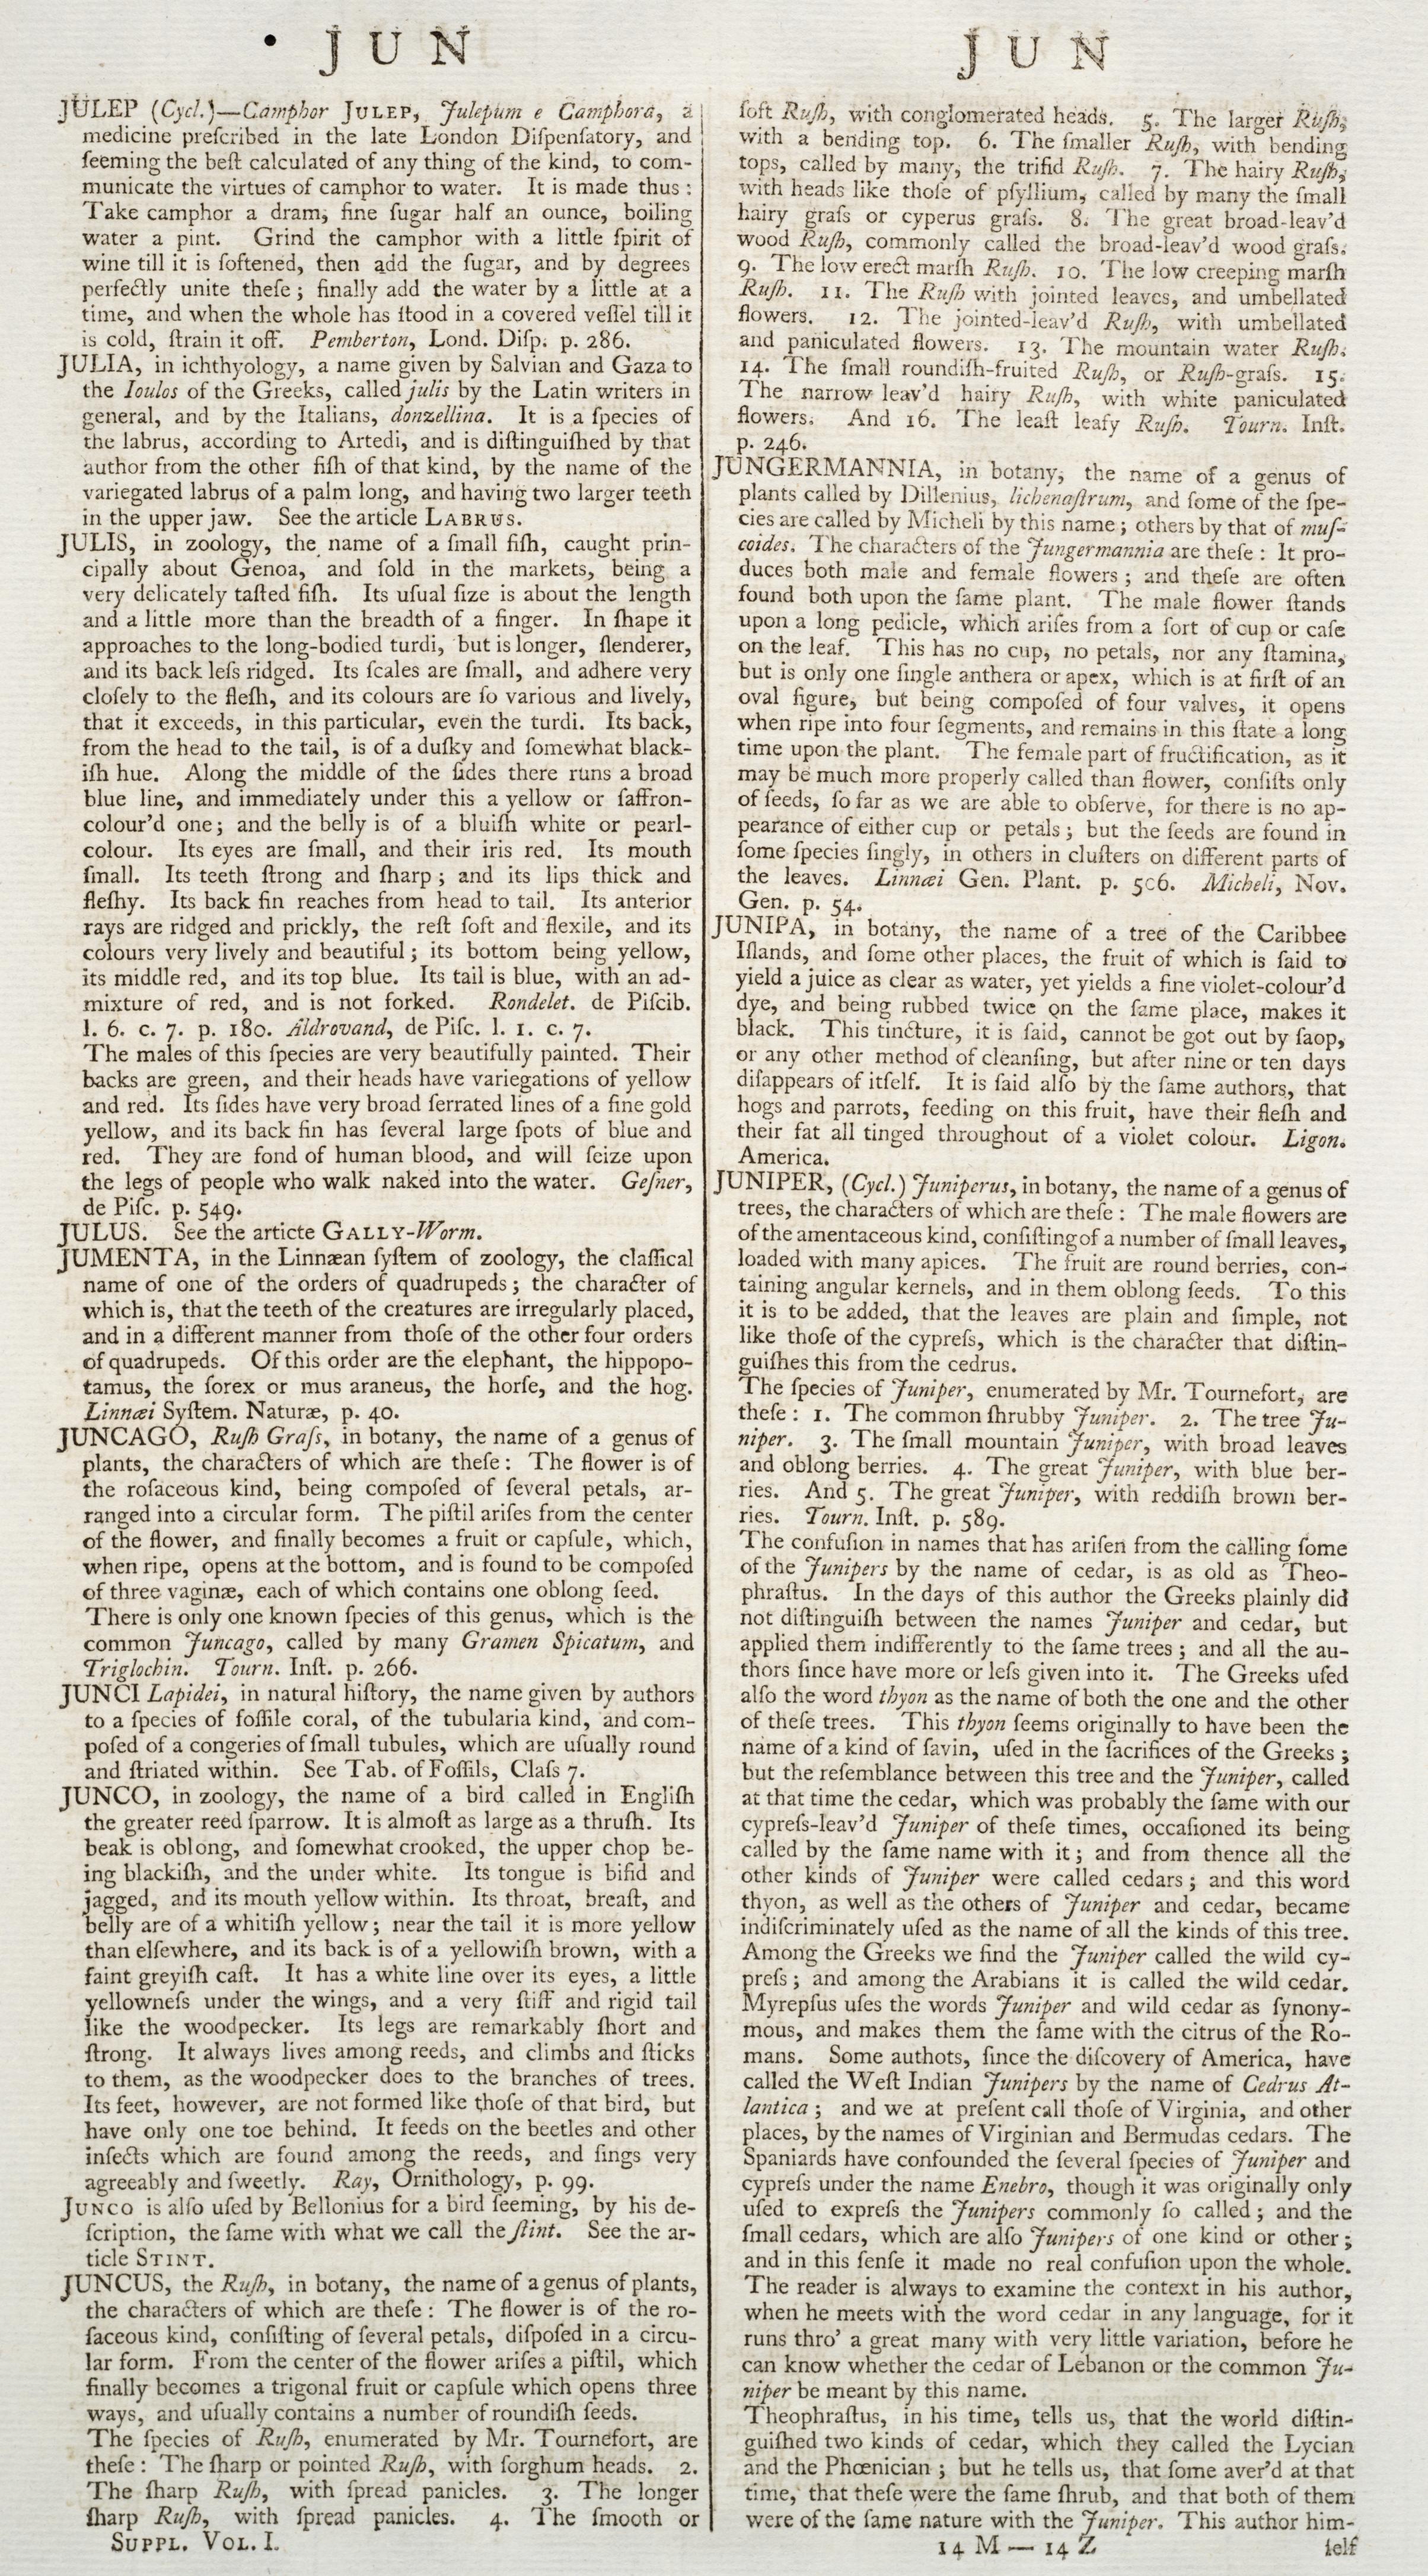 J U N
JULEP (Cycl.)—Camphor JULEP, Julepum e Camphora, a
medicine preſcribed in the late London Diſpenſatory, and
ſeeming the beſt calculated of any thing of the kind, to com-
municate the virtues of camphor to water. It is made thus:
Take camphor a dram, fine ſugar half an ounce, boiling
water a pint. Grind the camphor with a little ſpirit of
wine till it is ſoftened, then add the ſugar, and by degrees
perfectly unite theſe; finally add the water by a little at a
time, and when the whole has ſtood in a covered veſſel till it
is cold, ſtrain it off. Pemberton, Lond. Diſp. p. 286.
JULIA, in ichthyology, a name given by Salvian and Gaza to
the Ioulos of the Greeks, called julis by the Latin writers in
general, and by the Italians, donzellina. It is a ſpecies of
the labrus, according to Artedi, and is diſtinguiſhed by that
author from the other fiſh of that kind, by the name of the
variegated labrus of a palm long, and having two larger teeth
in the upper jaw. See the article LABRUS.
JULIS, in zoology, the name of a ſmall fiſh, caught prin-
cipally about Genoa, and ſold in the markets, being a
very delicately taſted fiſh. Its uſual ſize is about the length
and a little more than the breadth of a finger. In ſhape it
approaches to the long-bodied turdi, but is longer, ſlenderer,
and its back leſs ridged. Its ſcales are ſmall, and adhere very
cloſely to the fleſh, and its colours are ſo various and lively,
that it exceeds, in this particular, even the turdi. Its back,
from the head to the tail, is of a duſky and ſomewhat black-
iſh hue. Along the middle of the ſides there runs a broad
blue line, and immediately under this a yellow or ſaffron-
colour'd one; and the belly is of a bluiſh white or pearl-
colour. Its eyes are ſmall, and their iris red. Its mouth
ſmall. Its teeth ſtrong and ſharp; and its lips thick and
fleſhy. Its back fin reaches from head to tail. Its anterior
rays are ridged and prickly, the reſt ſoft and flexile, and its
colours very lively and beautiful; its bottom being yellow,
its middle red, and its top blue. Its tail is blue, with an ad-
mixture of red, and is not forked. Rondelet. de Piſcib.
l. 6. c. 7. p. 180. Aldrovand, de Piſc. l. 1. c. 7.
The males of this ſpecies are very beautifully painted. Their
backs are green, and their heads have variegations of yellow
and red. Its ſides have very broad ſerrated lines of a fine gold
yellow, and its back fin has ſeveral large ſpots of blue and
red. They are fond of human blood, and will ſeize upon
the legs of people who walk naked into the water. Geſner,
de Piſc. p. 549.
JULUS. See the articte GALLY-Worm.
JUMENTA, in the Linnæan ſyſtem of zoology, the claſſical
name of one of the orders of quadrupeds; the character of
which is, that the teeth of the creatures are irregularly placed,
and in a different manner from thoſe of the other four orders
of quadrupeds. Of this order are the elephant, the hippopo-
tamus, the ſorex or mus araneus, the horſe, and the hog.
Linnæi Syſtem. Naturæ, p. 40.
JUNCAGO, Ruſh Graſs, in botany, the name of a genus of
plants, the characters of which are theſe: The flower is of
the roſaceous kind, being compoſed of ſeveral petals, ar-
ranged into a circular form. The piſtil ariſes from the center
of the flower, and finally becomes a fruit or capſule, which,
when ripe, opens at the bottom, and is found to be compoſed
of three vaginæ, each of which contains one oblong ſeed.
There is only one known ſpecies of this genus, which is the
common Juncago, called by many Gramen Spicatum, and
Triglochin. Tourn. Inſt. p. 266.
JUNCI Lapidei, in natural hiſtory, the name given by authors
to a ſpecies of foſſile coral, of the tubularia kind, and com-
poſed of a congeries of ſmall tubules, which are uſually round
and ſtriated within. See Tab. of Foſſils, Claſs 7.
JUNCO, in zoology, the name of a bird called in Engliſh
the greater reed ſparrow. It is almoſt as large as a thruſh. Its
beak is oblong, and ſomewhat crooked, the upper chop be-
ing blackiſh, and the under white. Its tongue is bifid and
jagged, and its mouth yellow within. Its throat, breaſt, and
belly are of a whitiſh yellow; near the tail it is more yellow
than elſewhere, and its back is of a yellowiſh brown, with a
faint greyiſh caſt. It has a white line over its eyes, a little
yellowneſs under the wings, and a very ſtiff and rigid tail
like the woodpecker. Its legs are remarkably ſhort and
ſtrong. It always lives among reeds, and climbs and ſticks
to them, as the woodpecker does to the branches of trees.
Its feet, however, are not formed like thoſe of that bird, but
have only one toe behind. It feeds on the beetles and other
inſects which are found among the reeds, and ſings very
agreeably and ſweetly. Ray, Ornithology, p. 99.
JUNCO is alſo uſed by Bellonius for a bird ſeeming, by his de-
ſcription, the ſame with what we call the ſtint. See the ar-
ticle STINT.
JUNCUS, the Ruſh, in botany, the name of a genus of plants,
the characters of which are theſe: The flower is of the ro-
ſaceous kind, conſiſting of ſeveral petals, diſpoſed in a circu-
lar form. From the center of the flower ariſes a piſtil, which
finally becomes a trigonal fruit or capſule which opens three
ways, and uſually contains a number of roundiſh ſeeds.
The ſpecies of Ruſh, enumerated by Mr. Tournefort, are
theſe: The ſharp or pointed Ruſh, with ſorghum heads. 2.
The ſharp Ruſh, with ſpread panicles. 3. The longer
ſharp Ruſh, with ſpread panicles. 4. The ſmooth or
SUPPL. VOL. I.
J U N
ſoft Ruſh, with conglomerated heads. 5. The larger Ruſh,
with a bending top. 6. The ſmaller Ruſh, with bending
tops, called by many, the trifid Ruſh. 7. The hairy Ruſh,
with heads like thoſe of pſyllium, called by many the ſmall
hairy graſs or cyperus graſs. 8. The great broad-leav'd
wood Ruſh, commonly called the broad-leav'd wood graſs.
9. The low erect marſh Ruſh. 10. The low creeping marſh
Ruſh. 11. The Ruſh with jointed leaves, and umbellated
flowers. 12. The jointed-leav'd Ruſh, with umbellated
and paniculated flowers. 13. The mountain water Ruſh.
14. The ſmall roundiſh-fruited Ruſh, or Ruſh-graſs. 15.
The narrow leav'd hairy Ruſh, with white paniculated
flowers. And 16. The leaſt leafy Ruſh. Tourn. Inſt.
p. 246.
JUNGERMANNIA, in botany, the name of a genus of
plants called by Dillenius, lichenaſtrum, and ſome of the ſpe-
cies are called by Micheli by this name; others by that of muſ-
coides. The characters of the Jungermannia are theſe: It pro-
duces both male and female flowers; and theſe are often
found both upon the ſame plant. The male flower ſtands
upon a long pedicle, which ariſes from a ſort of cup or caſe
on the leaf. This has no cup, no petals, nor any ſtamina,
but is only one ſingle anthera or apex, which is at firſt of an
oval figure, but being compoſed of four valves, it opens
when ripe into four ſegments, and remains in this ſtate a long
time upon the plant. The female part of fructification, as it
may be much more properly called than flower, conſiſts only
of ſeeds, ſo far as we are able to obſerve, for there is no ap-
pearance of either cup or petals; but the ſeeds are found in
ſome ſpecies ſingly, in others in cluſters on different parts of
the leaves. Linnæi Gen. Plant. p. 506. Micheli, Nov.
Gen. p. 54.
JUNIPA, in botany, the name of a tree of the Caribbee
Iſlands, and ſome other places, the fruit of which is ſaid to
yield a juice as clear as water, yet yields a fine violet-colour'd
dye, and being rubbed twice on the ſame place, makes it
black. This tincture, it is ſaid, cannot be got out by ſaop,
or any other method of cleanſing, but after nine or ten days
diſappears of itſelf. It is ſaid alſo by the ſame authors, that
hogs and parrots, feeding on this fruit, have their fleſh and
their fat all tinged throughout of a violet colour. Ligon.
America.
JUNIPER, (Cycl.) Juniperus, in botany, the name of a genus of
trees, the characters of which are theſe: The male flowers are
of the amentaceous kind, conſiſting of a number of ſmall leaves,
loaded with many apices. The fruit are round berries, con-
taining angular kernels, and in them oblong ſeeds. To this
it is to be added, that the leaves are plain and ſimple, not
like thoſe of the cypreſs, which is the character that diſtin-
guiſhes this from the cedrus.
The ſpecies of Juniper, enumerated by Mr. Tournefort, are
theſe: 1. The common ſhrubby Juniper. 2. The tree Ju-
niper. 3. The ſmall mountain Juniper, with broad leaves
and oblong berries. 4. The great Juniper, with blue ber-
ries. And 5. The great Juniper, with reddiſh brown ber-
ries. Tourn. Inſt. p. 589.
The confuſion in names that has ariſen from the calling ſome
of the Junipers by the name of cedar, is as old as Theo-
phraſtus. In the days of this author the Greeks plainly did
not diſtinguiſh between the names Juniper and cedar, but
applied them indifferently to the ſame trees; and all the au-
thors ſince have more or leſs given into it. The Greeks uſed
alſo the word thyon as the name of both the one and the other
of theſe trees. This thyon ſeems originally to have been the
name of a kind of ſavin, uſed in the ſacrifices of the Greeks;
but the reſemblance between this tree and the Juniper, called
at that time the cedar, which was probably the ſame with our
cypreſs-leav'd Juniper of theſe times, occaſioned its being
called by the ſame name with it; and from thence all the
other kinds of Juniper were called cedars; and this word
thyon, as well as the others of Juniper and cedar, became
indiſcriminately uſed as the name of all the kinds of this tree.
Among the Greeks we find the Juniper called the wild cy-
preſs; and among the Arabians it is called the wild cedar.
Myrepſus uſes the words Juniper and wild cedar as ſynony-
mous, and makes them the ſame with the citrus of the Ro-
mans. Some authots, ſince the diſcovery of America, have
called the Weſt Indian Junipers by the name of Cedrus At-
lantica; and we at preſent call thoſe of Virginia, and other
places, by the names of Virginian and Bermudas cedars. The
Spaniards have confounded the ſeveral ſpecies of Juniper and
cypreſs under the name Enebro, though it was originally only
uſed to expreſs the Junipers commonly ſo called; and the
ſmall cedars, which are alſo Junipers of one kind or other;
and in this ſenſe it made no real confuſion upon the whole.
The reader is always to examine the context in his author,
when he meets with the word cedar in any language, for it
runs thro' a great many with very little variation, before he
can know whether the cedar of Lebanon or the common Ju-
niper be meant by this name.
Theophraſtus, in his time, tells us, that the world diſtin-
guiſhed two kinds of cedar, which they called the Lycian
and the Phœnician; but he tells us, that ſome aver'd at that
time, that theſe were the ſame ſhrub, and that both of them
were of the ſame nature with the Juniper. This author him-
14 M — 14 Z ſelf